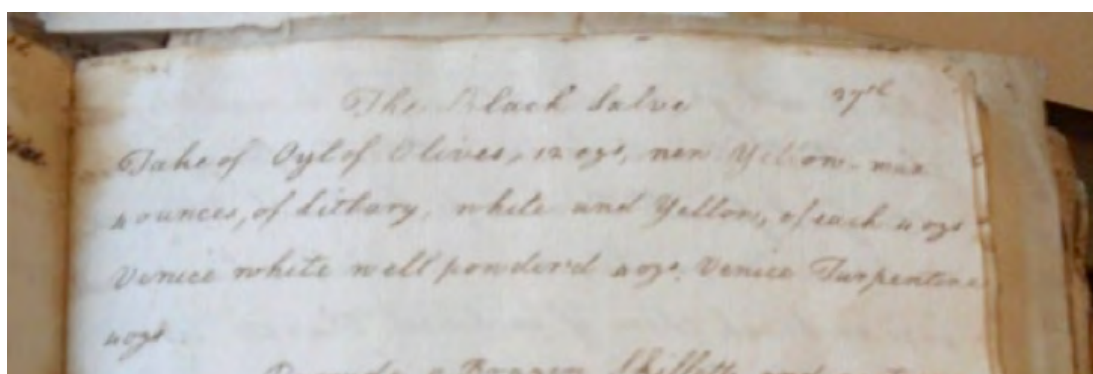 The Black Salve 27th
Take of Oyl of Olives, 12 ozs, new Yellow wax
4 ounces, of Litharg, white and Yellow, of each 4 ozs
Venice white well powder'd 4 ozs. Venice Turpentine
4 ozs
a Brazen Skillett